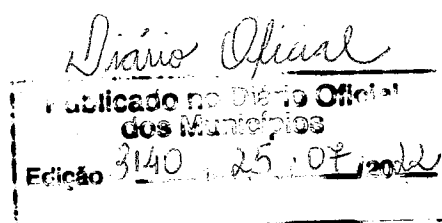 Diário Oficial
Publicado no Diário Oficial
dos Municípios
Edição 3140 25 / 07 /2022